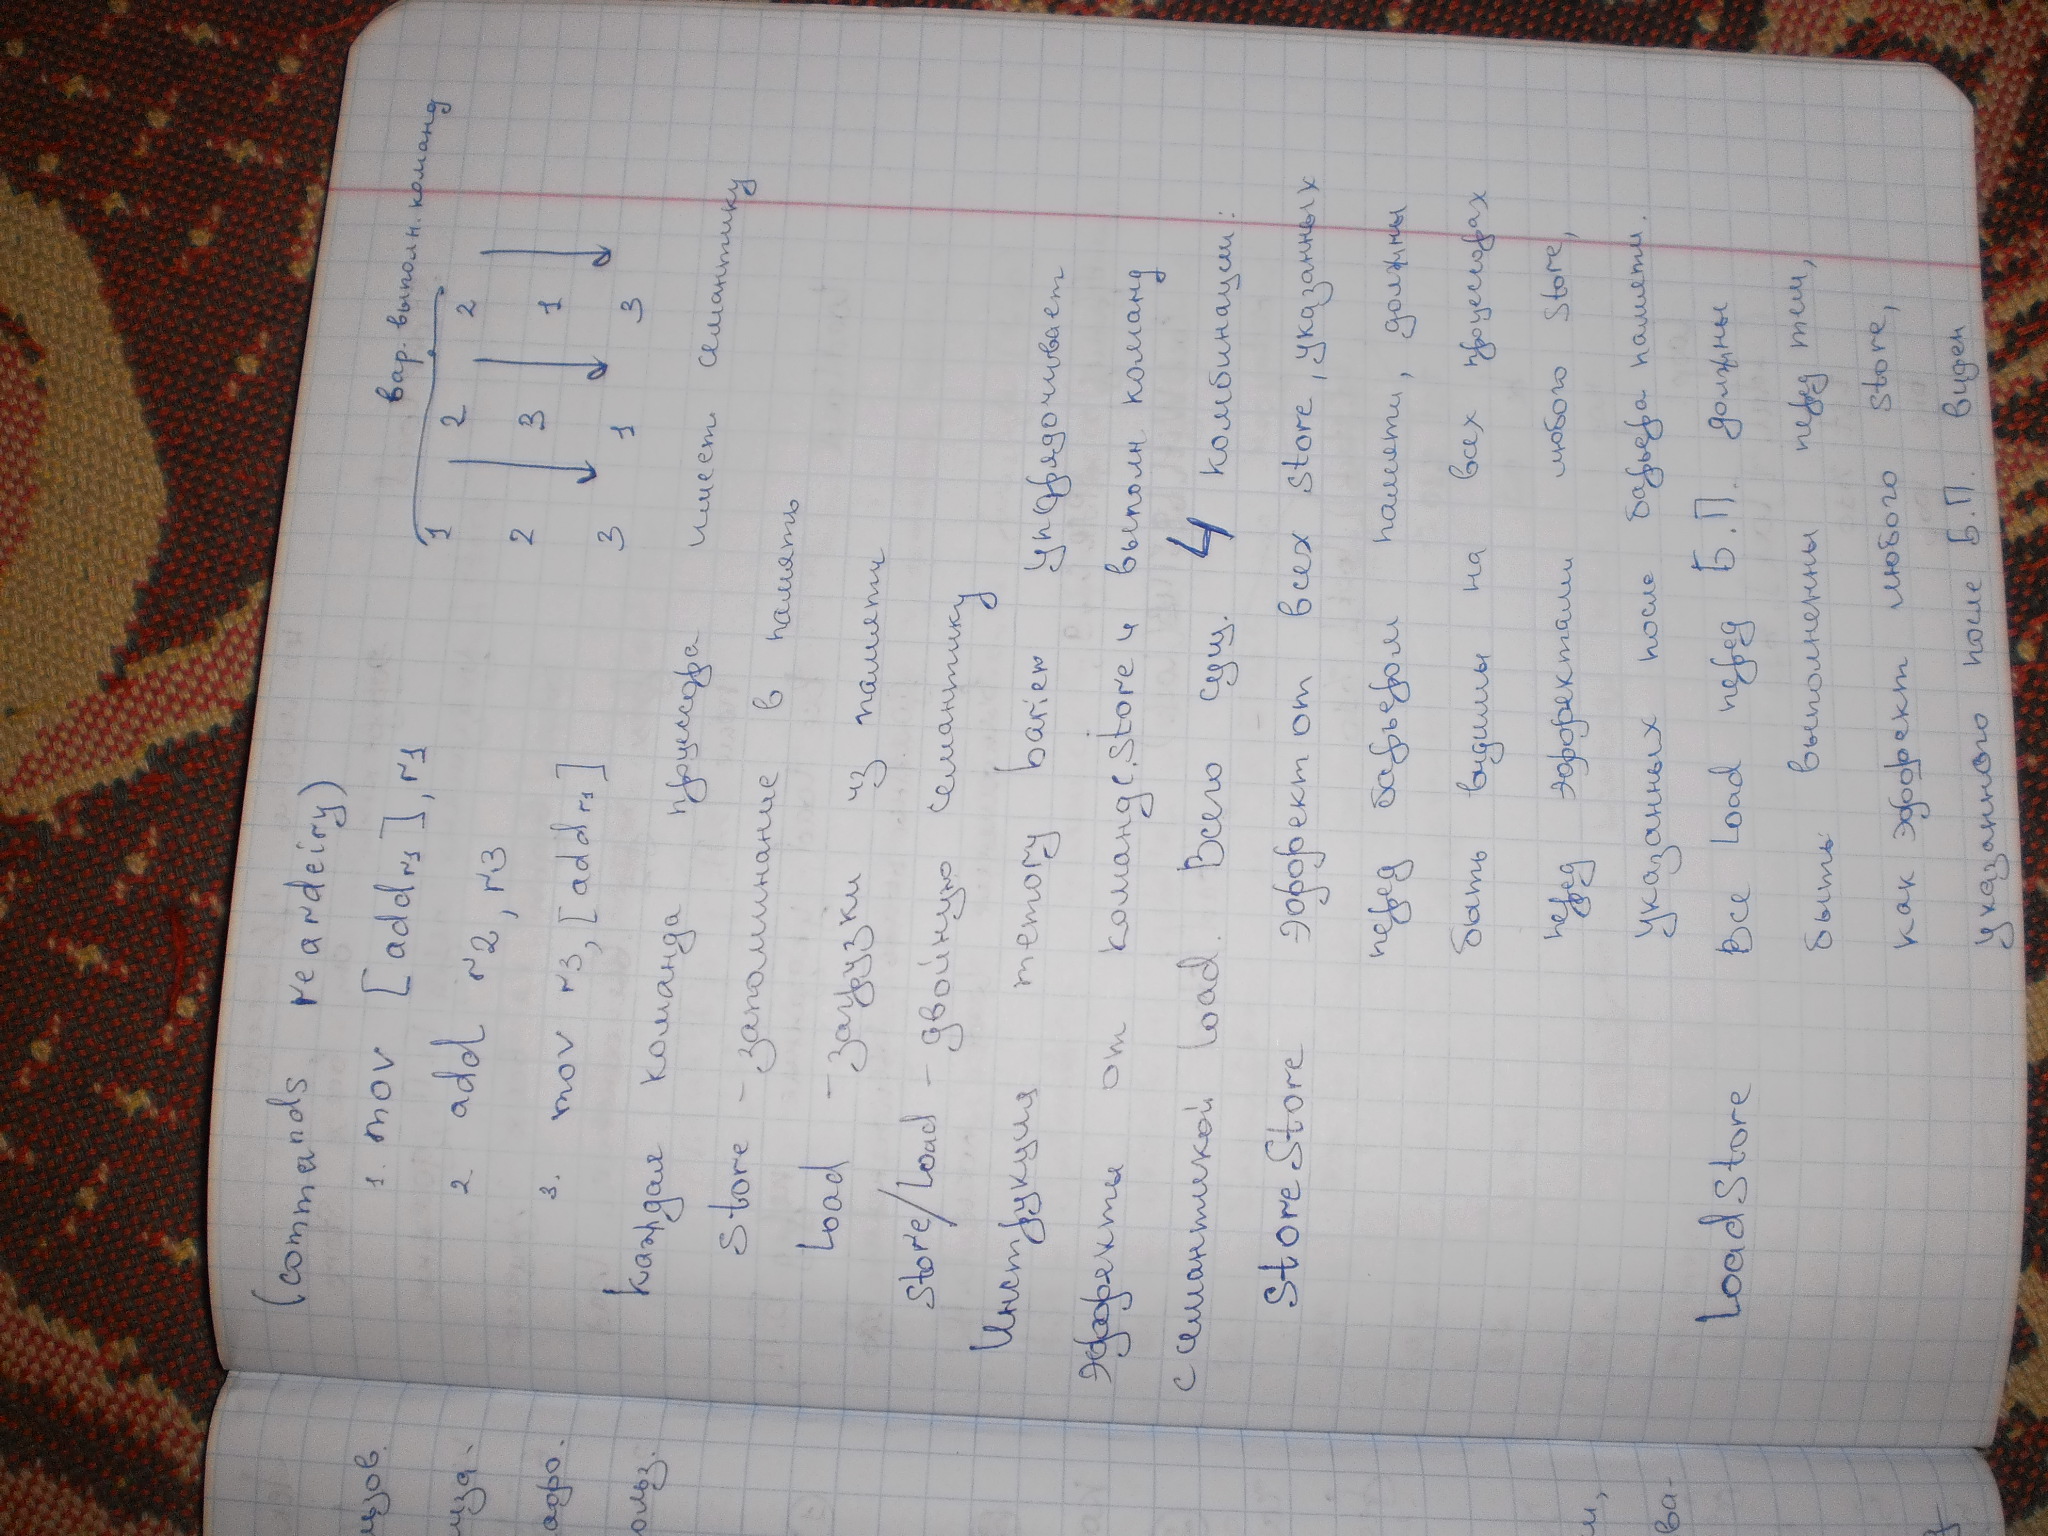 (commands reardeiry)
вар. выполн. команд
1. mov [addr1], r1
1 2 2
2. add r2, r3
2 3 1
3. mov r3, [addr1]
3 1 3
Каждая команда процессора имеет семантику
Store - запоминание в память
Load - загрузки из памяти
Store/Load - двойную семантику
Инструкция memory barier упорядочивает
Эффекты от команд с. Store и выполн команд
с семантикой Load. Всего сущ. 4 комбинации:
StoreStore эффект от всех Store, указанных
перед барьером памяти, должны
быть видимы на всех процессорах
перед эффектами любого Store,
указанных после барьера памяти.
LoadStore Все Load перед Б.П. должны
быть выполненны перед тем,
как эффект любого Store,
указанного после Б.П. виден
цзов.
ольз.
ва-